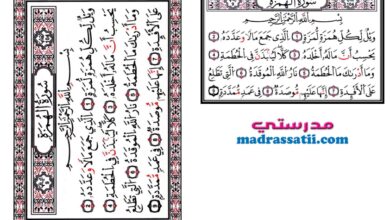 سُورَةُ الْهُمَزَةِ
بِسْمِ اللَّهِ الرَّحْمَٰنِ الرَّحِيمِ
وَيْلٌ لِّكُلِّ هُمَزَةٍ لُّمَزَةٍ ١ الَّذِي جَمَعَ مَالًا وَعَدَّدَهُ ٢
يَحْسَبُ أَنَّ مَالَهُ أَخْلَدَهُ ٣ كَلَّا لَيُنبَذَنَّ فِي الْحُطَمَةِ ٤
وَمَا أَدْرَاكَ مَا الْحُطَمَةُ ٥ نَارُ اللَّهِ الْمُوقَدَةُ ٦ الَّتِي تَطَّلِعُ
عَلَى الْأَفْئِدَةِ ٧ إِنَّهَا عَلَيْهِم مُّؤْصَدَةٌ ٨ فِي عَمَدٍ مُّمَدَّدَةٍ ٩
سُورَةُ الْهُمَزَةِ
بِسْمِ اللَّهِ الرَّحْمَٰنِ الرَّحِيمِ
وَيْلٌ لِّكُلِّ هُمَزَةٍ لُّمَزَةٍ ١ الَّذِي جَمَعَ مَالًا وَعَدَّدَهُ ٢
يَحْسَبُ أَنَّ مَالَهُ أَخْلَدَهُ ٣ كَلَّا لَيُنبَذَنَّ فِي الْحُطَمَةِ ٤
وَمَا أَدْرَاكَ مَا الْحُطَمَةُ ٥ نَارُ اللَّهِ الْمُوقَدَةُ ٦ الَّتِي تَطَّلِعُ
عَلَى الْأَفْئِدَةِ ٧ إِنَّهَا عَلَيْهِم مُّؤْصَدَةٌ ٨ فِي عَمَدٍ مُّمَدَّدَةٍ ٩
مدرستي
madrassatii.com